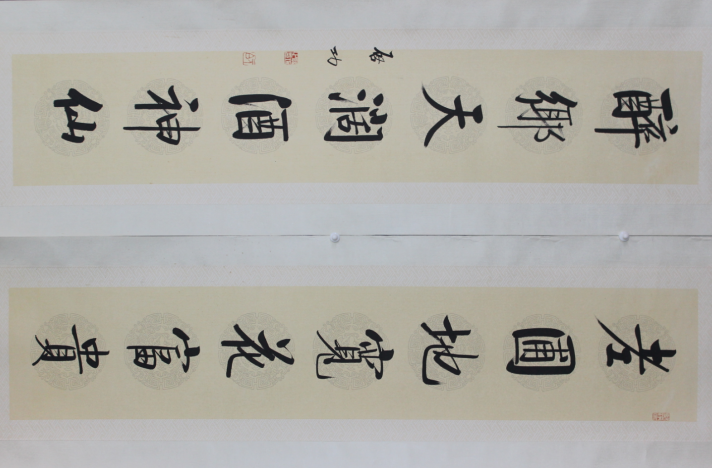 老圃地寬花富貴
醉鄉天濶酒神仙
启功